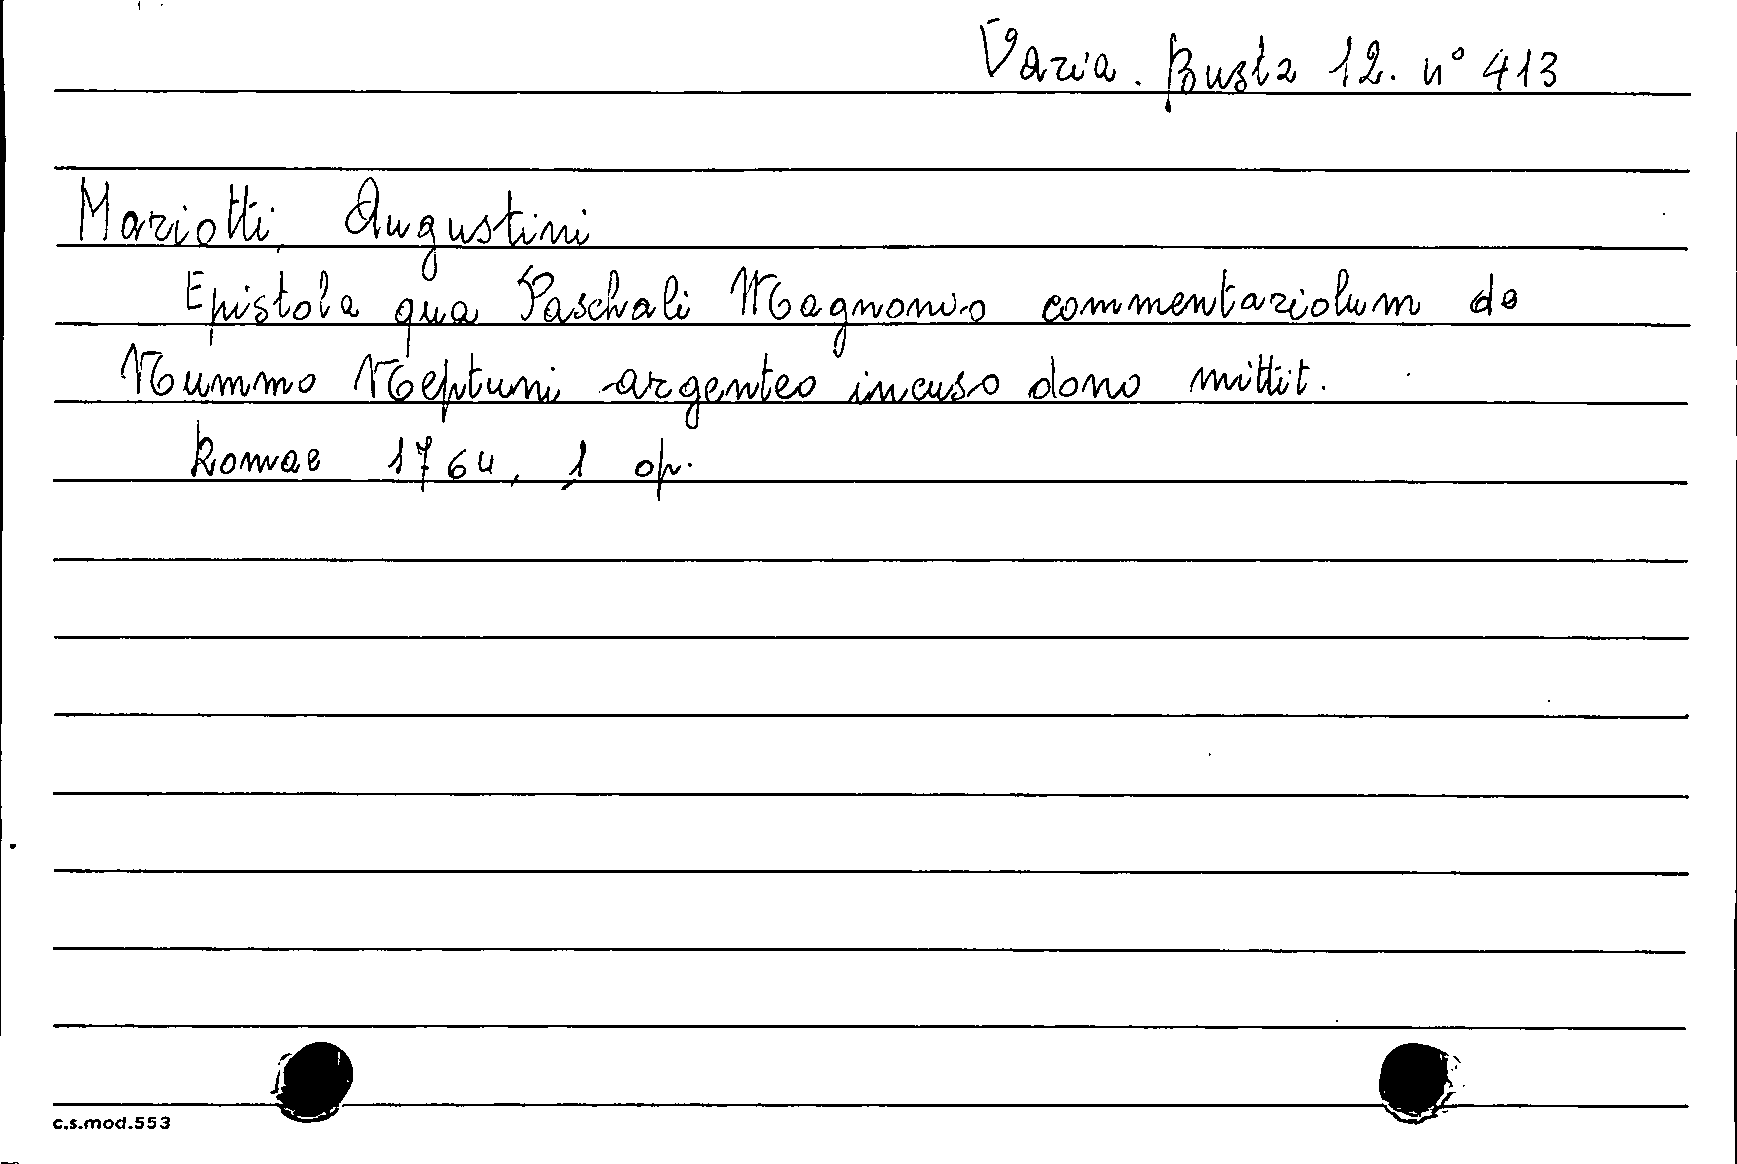 Varia. Busta 12. n° 413
Mariotti, Augustini
Epistola qua Paschali Magnonio commentariolum de
Nummo Neptuni argenteo incuso dono mittit.
Romae 1764, 1 op.
c.s.mod.553